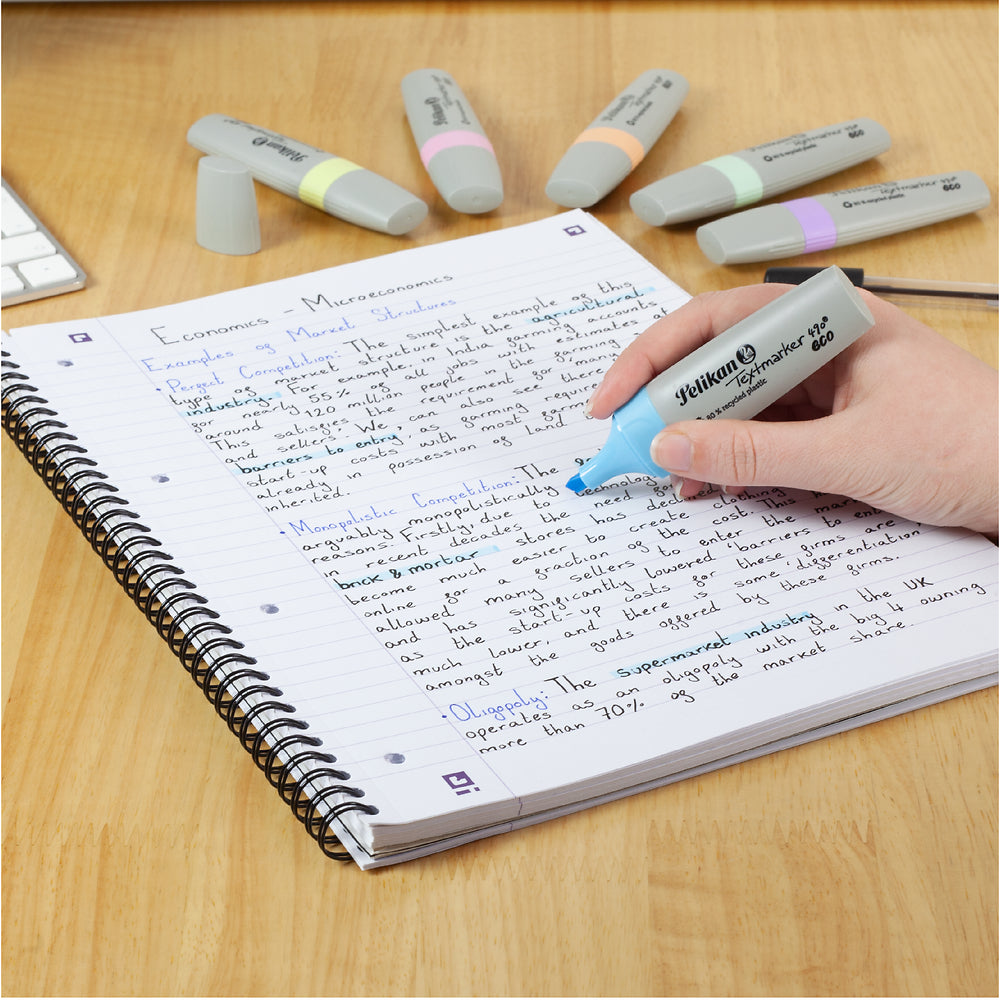 Economics - Microeconomics
Examples of Market Structures
• Perfect Competition: The simplest example of this
type of market structure is the agricultural
industry. For example, in India farming accounts
for nearly 55% of all jobs with estimates of
around 120 million people in the farming
This satisfies the requirement for many
and sellers. We can also see there
barriers to entry, as farming requi
start-up costs with most farm
already in possession of land
inherited.
• Monopolistic Competition: The
arguably monopolistically technolog
reasons. Firstly, due to
in recent decades the need for
brick & mortar stores has declined
become much easier to create clothing
online for a fraction of the cost. This
allowed for many sellers to enter the mar
and has significantly lowered 'barriers to en
as the start-up costs for these firms are
much lower, and there is some 'differentiation
amongst the goods offered by these firms.
• Oligopoly: The supermarket industry in the UK
operates as an oligopoly with the big 4 owning
more than 70% of the market share.
Pelikan
Textmarker 490®
eco
80% recycled plastic
Pelikan
Pelikan
Pelikan
Textmarker 490
eco
80% recycled plastic
Pelikan
Textmarker 490
eco
80% recycled plastic